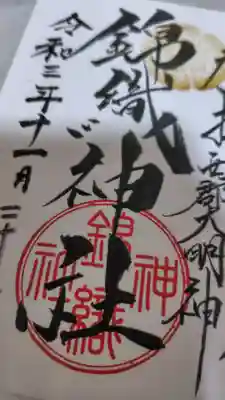 郡大明神
錦織神社
令和三年十一月二十
錦織神社